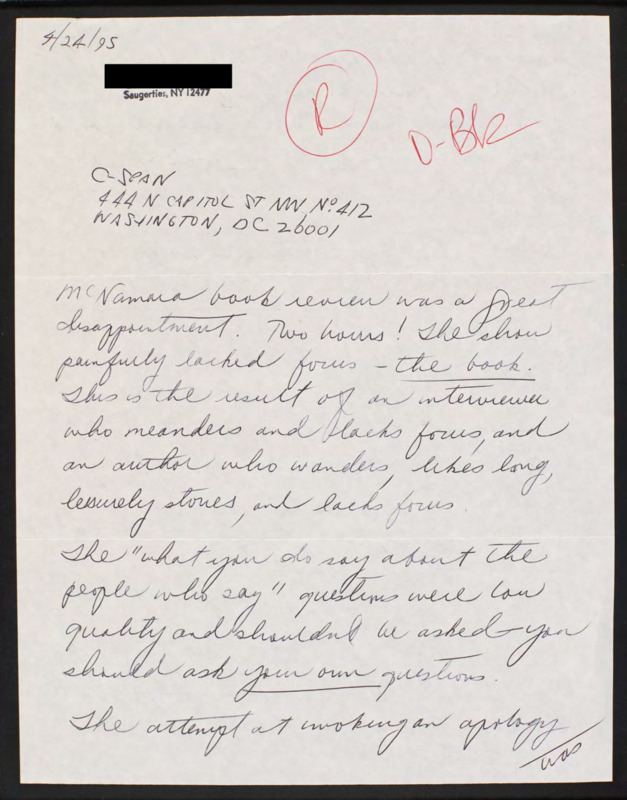 4/24/95
Saugerties, NY 12477
R
D-Bk
C-SPAN
444 N CAPITOL ST NW, Nº 412
WASHINGTON, DC 20001
McNamara book review was a great
disappointment. Two hours! The show
painfully lacked focus – the book.
This is the result of an interviewer
who meanders and lacks focus, and
an author who wanders, likes long,
leisurely stories, and lacks focus.
The "what you do say about the
people who say" questions were low
quality and shouldn't be asked – you
should ask your own questions.
The attempt at invoking an apology
was